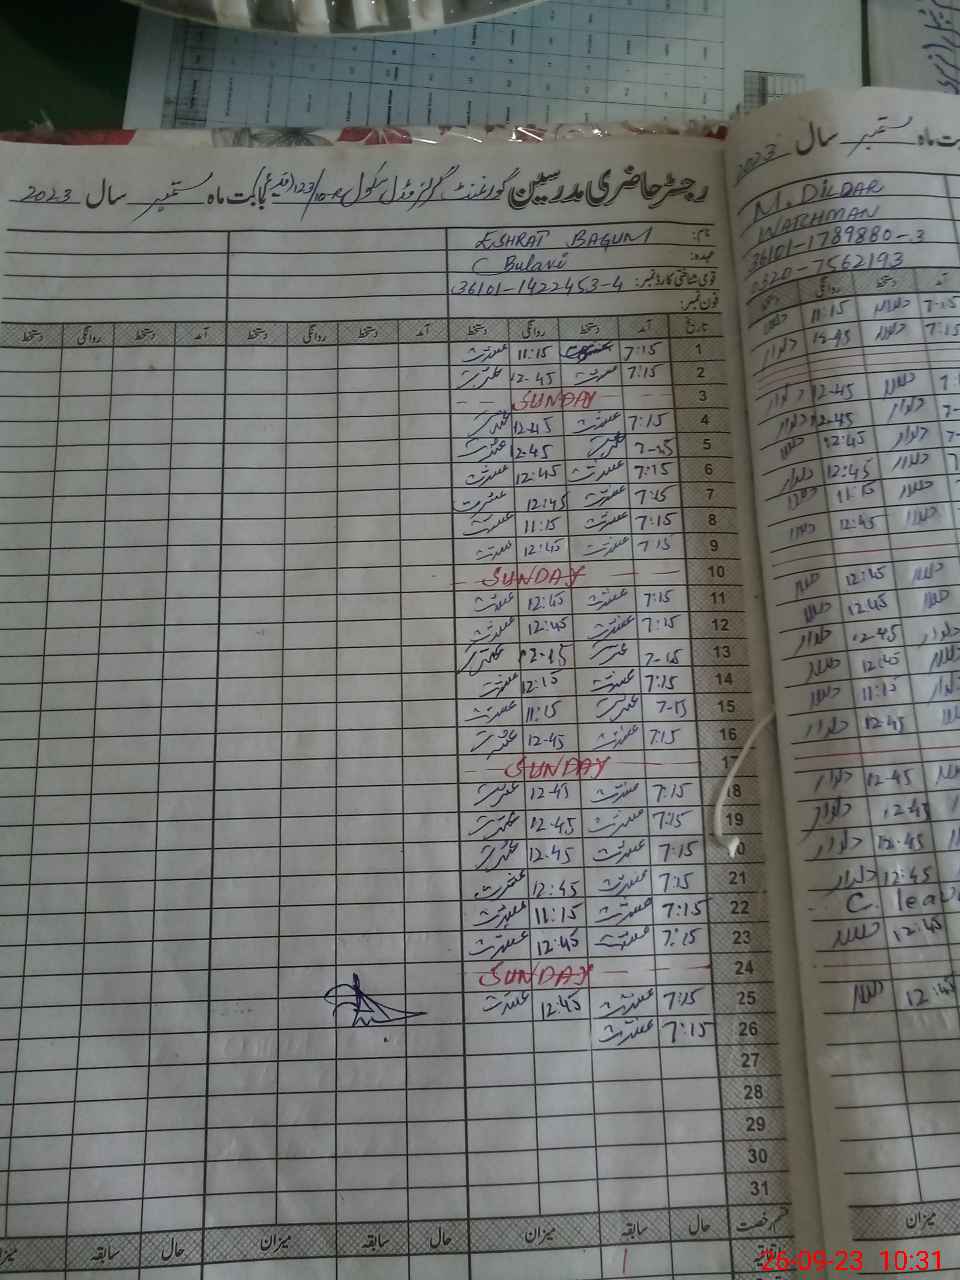 رجسٹر حاضری مدرسین گورنمنٹ گرلز مڈل سکول 123/10-R بابت ماہ ستمبر سال 2023
نام: ESHRAT BAGUM
عہدہ: Bulavi
قومی شناختی کارڈ نمبر: 36101-1422453-4
فون نمبر:
تاریخ آمد دستخط روانگی دستخط آمد دستخط روانگی دستخط آمد دستخط روانگی دستخط
1 7:15 عشرت 11:15 عشرت
2 7:15 عشرت 12-45 عشرت
3 SUNDAY
4 7:15 عشرت 12-45 عشرت
5 7-15 عشرت 12-45 عشرت
6 7:15 عشرت 12:45 عشرت
7 7:15 عشرت 12:45 عشرت
8 7:15 عشرت 11:15 عشرت
9 7:15 عشرت 12:45 عشرت
10 SUNDAY
11 7:15 عشرت 12:45 عشرت
12 7:15 عشرت 12:45 عشرت
13 7-15 عشرت 12-45 عشرت
14 7:15 عشرت 12:15 عشرت
15 7-15 عشرت 11:15 عشرت
16 7:15 عشرت 12-45 عشرت
17 SUNDAY
18 7:15 عشرت 12-45 عشرت
19 7:15 عشرت 12-45 عشرت
20 7:15 عشرت 12-45 عشرت
21 7:15 عشرت 12:45 عشرت
22 7:15 عشرت 11:15 عشرت
23 7:15 عشرت 12:45 عشرت
24 SUNDAY
25 7:15 عشرت 12:45 عشرت
26 7:15 عشرت
27
28
29
30
31
قسم رخصت حال سابقہ میزان حال سابقہ میزان حال سابقہ میزان
1
ستمبر سال 2023
M. DILDAR
WATHMAN
36101-1789880-3
0320-7562193
آمد دستخط روانگی دستخط
7-15 دلدار 11:15 دلدار
7:15 دلدار 12-45 دلدار
دلدار 12-45 دلدار
دلدار 12-45 دلدار
دلدار 12:45 دلدار
دلدار 12:45 دلدار
دلدار 11:15 دلدار
دلدار 12:45 دلدار
دلدار 12:45 دلدار
دلدار 12:45 دلدار
دلدار 12-45 دلدار
دلدار 12:45 دلدار
دلدار 11:15 دلدار
دلدار 12-45 دلدار
دلدار 12-45 دلدار
12-45 دلدار
12-45 دلدار
12-45 دلدار
C. leave
12:45 دلدار
12:45 دلدار
میزان
26-09-23 10:31